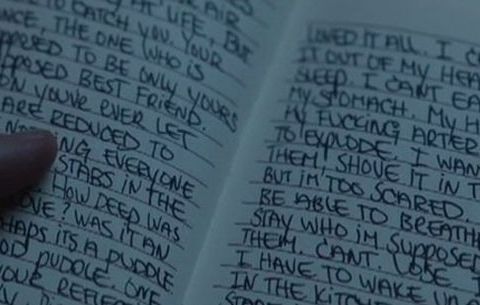 AIR
TO CATCH YOU. YOUR
AT LIFE, BUT
NCE, THE ONE WHO IS
PPOSED TO BE ONLY YOURS
PPOSED BEST FRIEND.
ON YOU'VE EVER LET
ARE REDUCED TO
NG EVERYONE
STABS IN THE
HOW DEEP WAS
OVE? WAS IT AN
HAPS ITS A PUDDLE
OD PUDDLE. ONE
YOUR REFLE
LOVED IT ALL. I C
IT OUT OF MY HEA
SLEEP. I CAN'T EA
MY STOMACH. MY H
MY FUCKING ARTER
TO EXPLODE. I WAN
THEM, SHOVE IT IN T
BUT I'M TOO SCARED.
BE ABLE TO BREATH
STAY WHO IM SUPPOSED
THEM. CANT. LOSE. T
I HAVE TO WAKE UP
IN THE KITCH